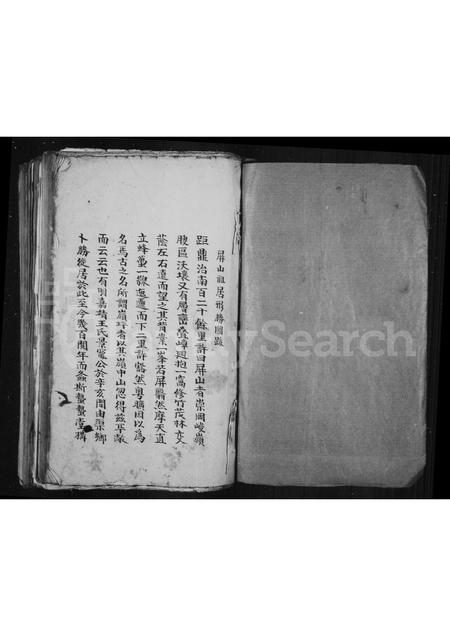 屏山祖居形勝圖跋
距鼎治南百二十餘里許曰屏山者崇岡峻嶺
腹區沃壤又有層巒疊嶂迴抱一窩修竹茂林交
蔭左右遠而望之其背業一峯若屏翳然摩天直
立蜂蠆一線迤邐而下二里許豁然粤擴因以為
名焉古之名所謂嶺坪者以其嶺中山忽得茲平敞
而云云也有明嘉靖王氏景寬公於辛亥間由榮鄉
卜勝從居於此至今幾百閱年而螽斯蟄蟄堂搆